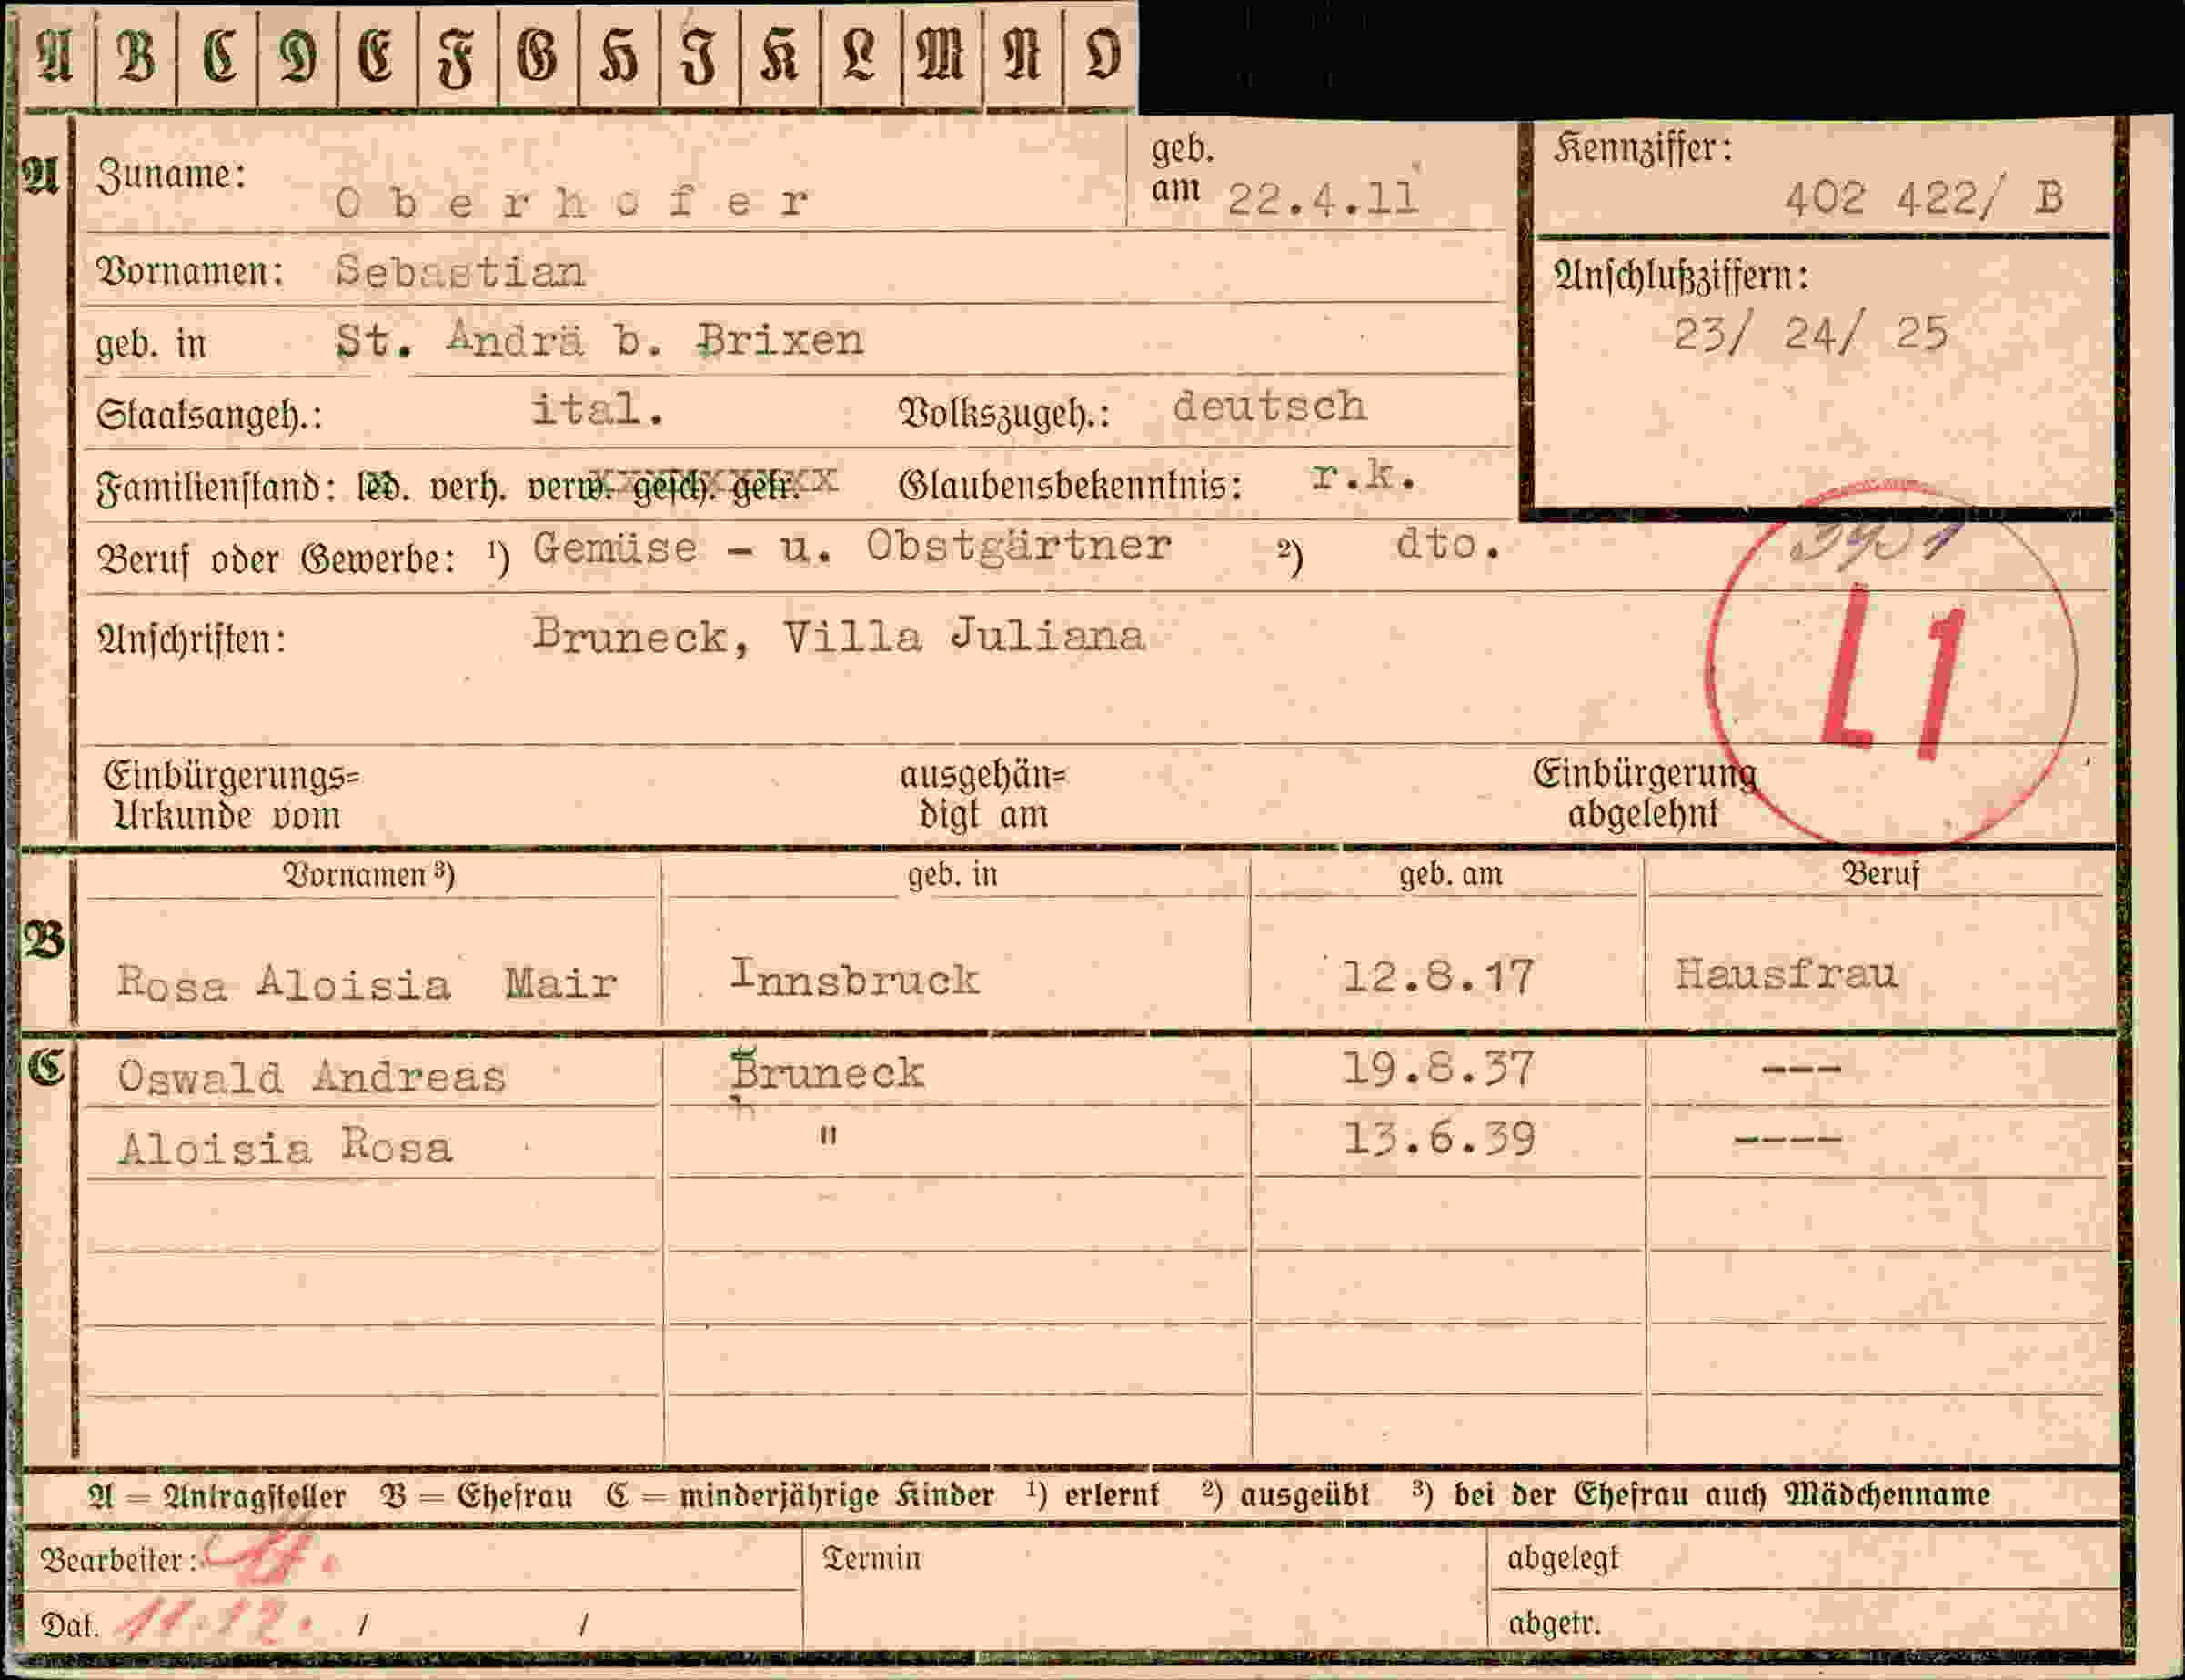 A B C D E F G H I K L M N O
A Zuname: Oberhofer geb. am 22.4.11 Kennziffer: 402 422/ B
Vornamen: Sebastian Anschlußziffern:
geb. in St. Andrä b. Brixen 23/ 24/ 25
Staatsangeh.: ital. Volkszugeh.: deutsch
Familienstand: led. verh. verw. gesch. getr. Glaubensbekenntnis: r.k.
Beruf oder Gewerbe: ¹) Gemüse - u. Obstgärtner ²) dto.
Anschriften: Bruneck, Villa Juliana L1
Einbürgerungs= ausgehän= Einbürgerung
Urkunde vom digt am abgelehnt
Vornamen ³) geb. in geb. am Beruf
B Rosa Aloisia Mair Innsbruck 12.8.17 Hausfrau
C Oswald Andreas Bruneck 19.8.37 ---
Aloisia Rosa " 13.6.39 ----
A = Antragsteller B = Ehefrau C = minderjährige Kinder ¹) erlernt ²) ausgeübt ³) bei der Ehefrau auch Mädchenname
Bearbeiter: Termin abgelegt
Dat. 11.12. / / abgetr.